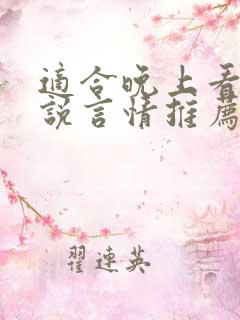 適合晚上看
說言情推薦
翟連英